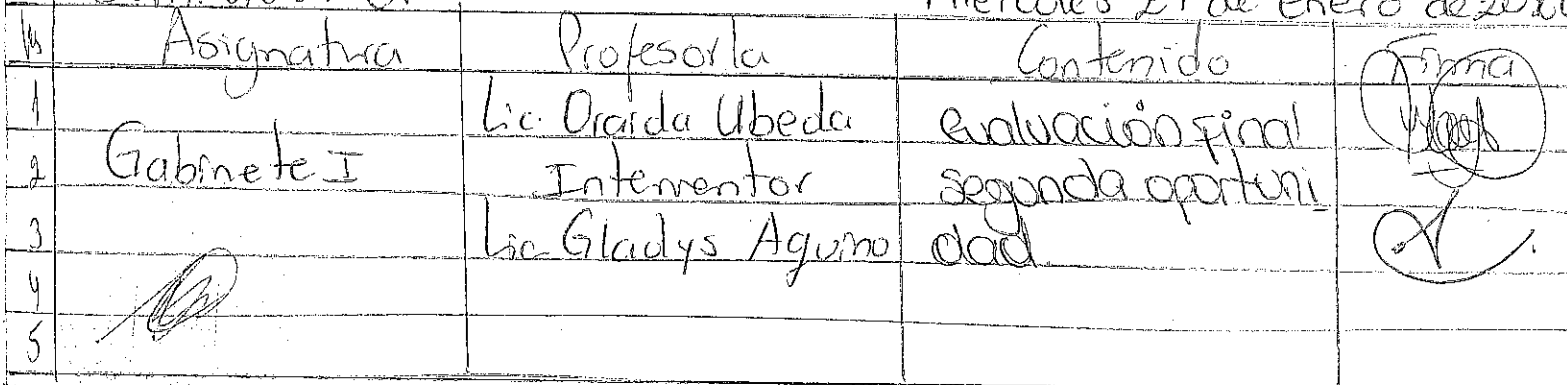 Miercoles 27 de enero de
Asignatura Profesor/a Contenido Firma
1 Lic. Oraida Ubeda evaluación final
2 Gabinete I Interventor segunda oportuni
3 Lic. Gladys Aguirre dad
4
5